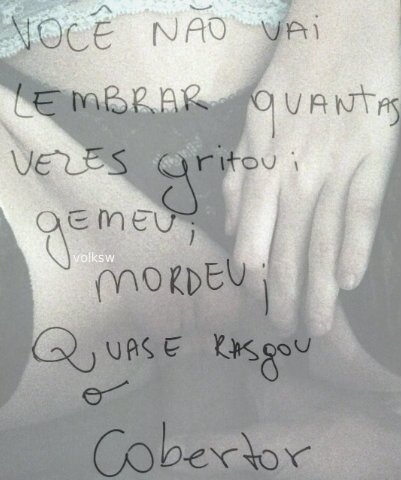 VOCÊ NÃO VAi
LEMBRAR QUANTAS
VEZES gritou;
gEMEU;
volksw
MORDEU;
QUASE RASgOU
o
Cobertor